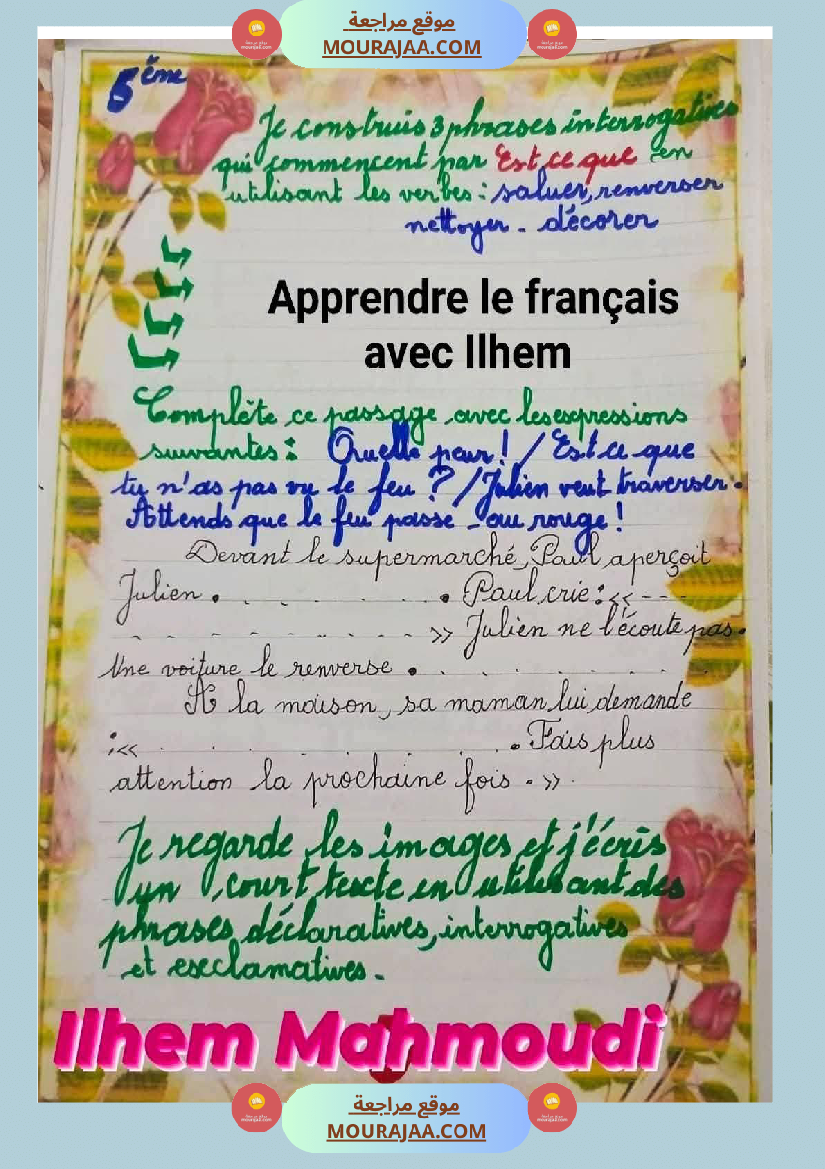 موقع مراجعة
MOURAJAA.COM
5ème
Je construis 3 phrases interrogatives
qui commencent par Est ce que en
utilisant les verbes : saluer, renverser
nettoyer - décorer
Apprendre le français
avec Ilhem
Complète ce passage avec les expressions
suivantes : Quelle peur ! / Est ce que
tu n'as pas vu le feu ? / Julien veut traverser.
Attends que le feu passe au rouge !
Devant le supermarché, Paul aperçoit
Julien . . . . . . . . Paul crie : << - - -
- - - . - . - . - >> Julien ne l'écoute pas.
Une voiture le renverse . . . . . . . .
A la maison, sa maman lui demande
: << . . . . . . . . Fais plus
attention la prochaine fois . >>
Je regarde les images et j'écris
un court texte en utilisant des
phrases déclaratives, interrogatives
et exclamatives.
Ilhem Mahmoudi
موقع مراجعة
MOURAJAA.COM